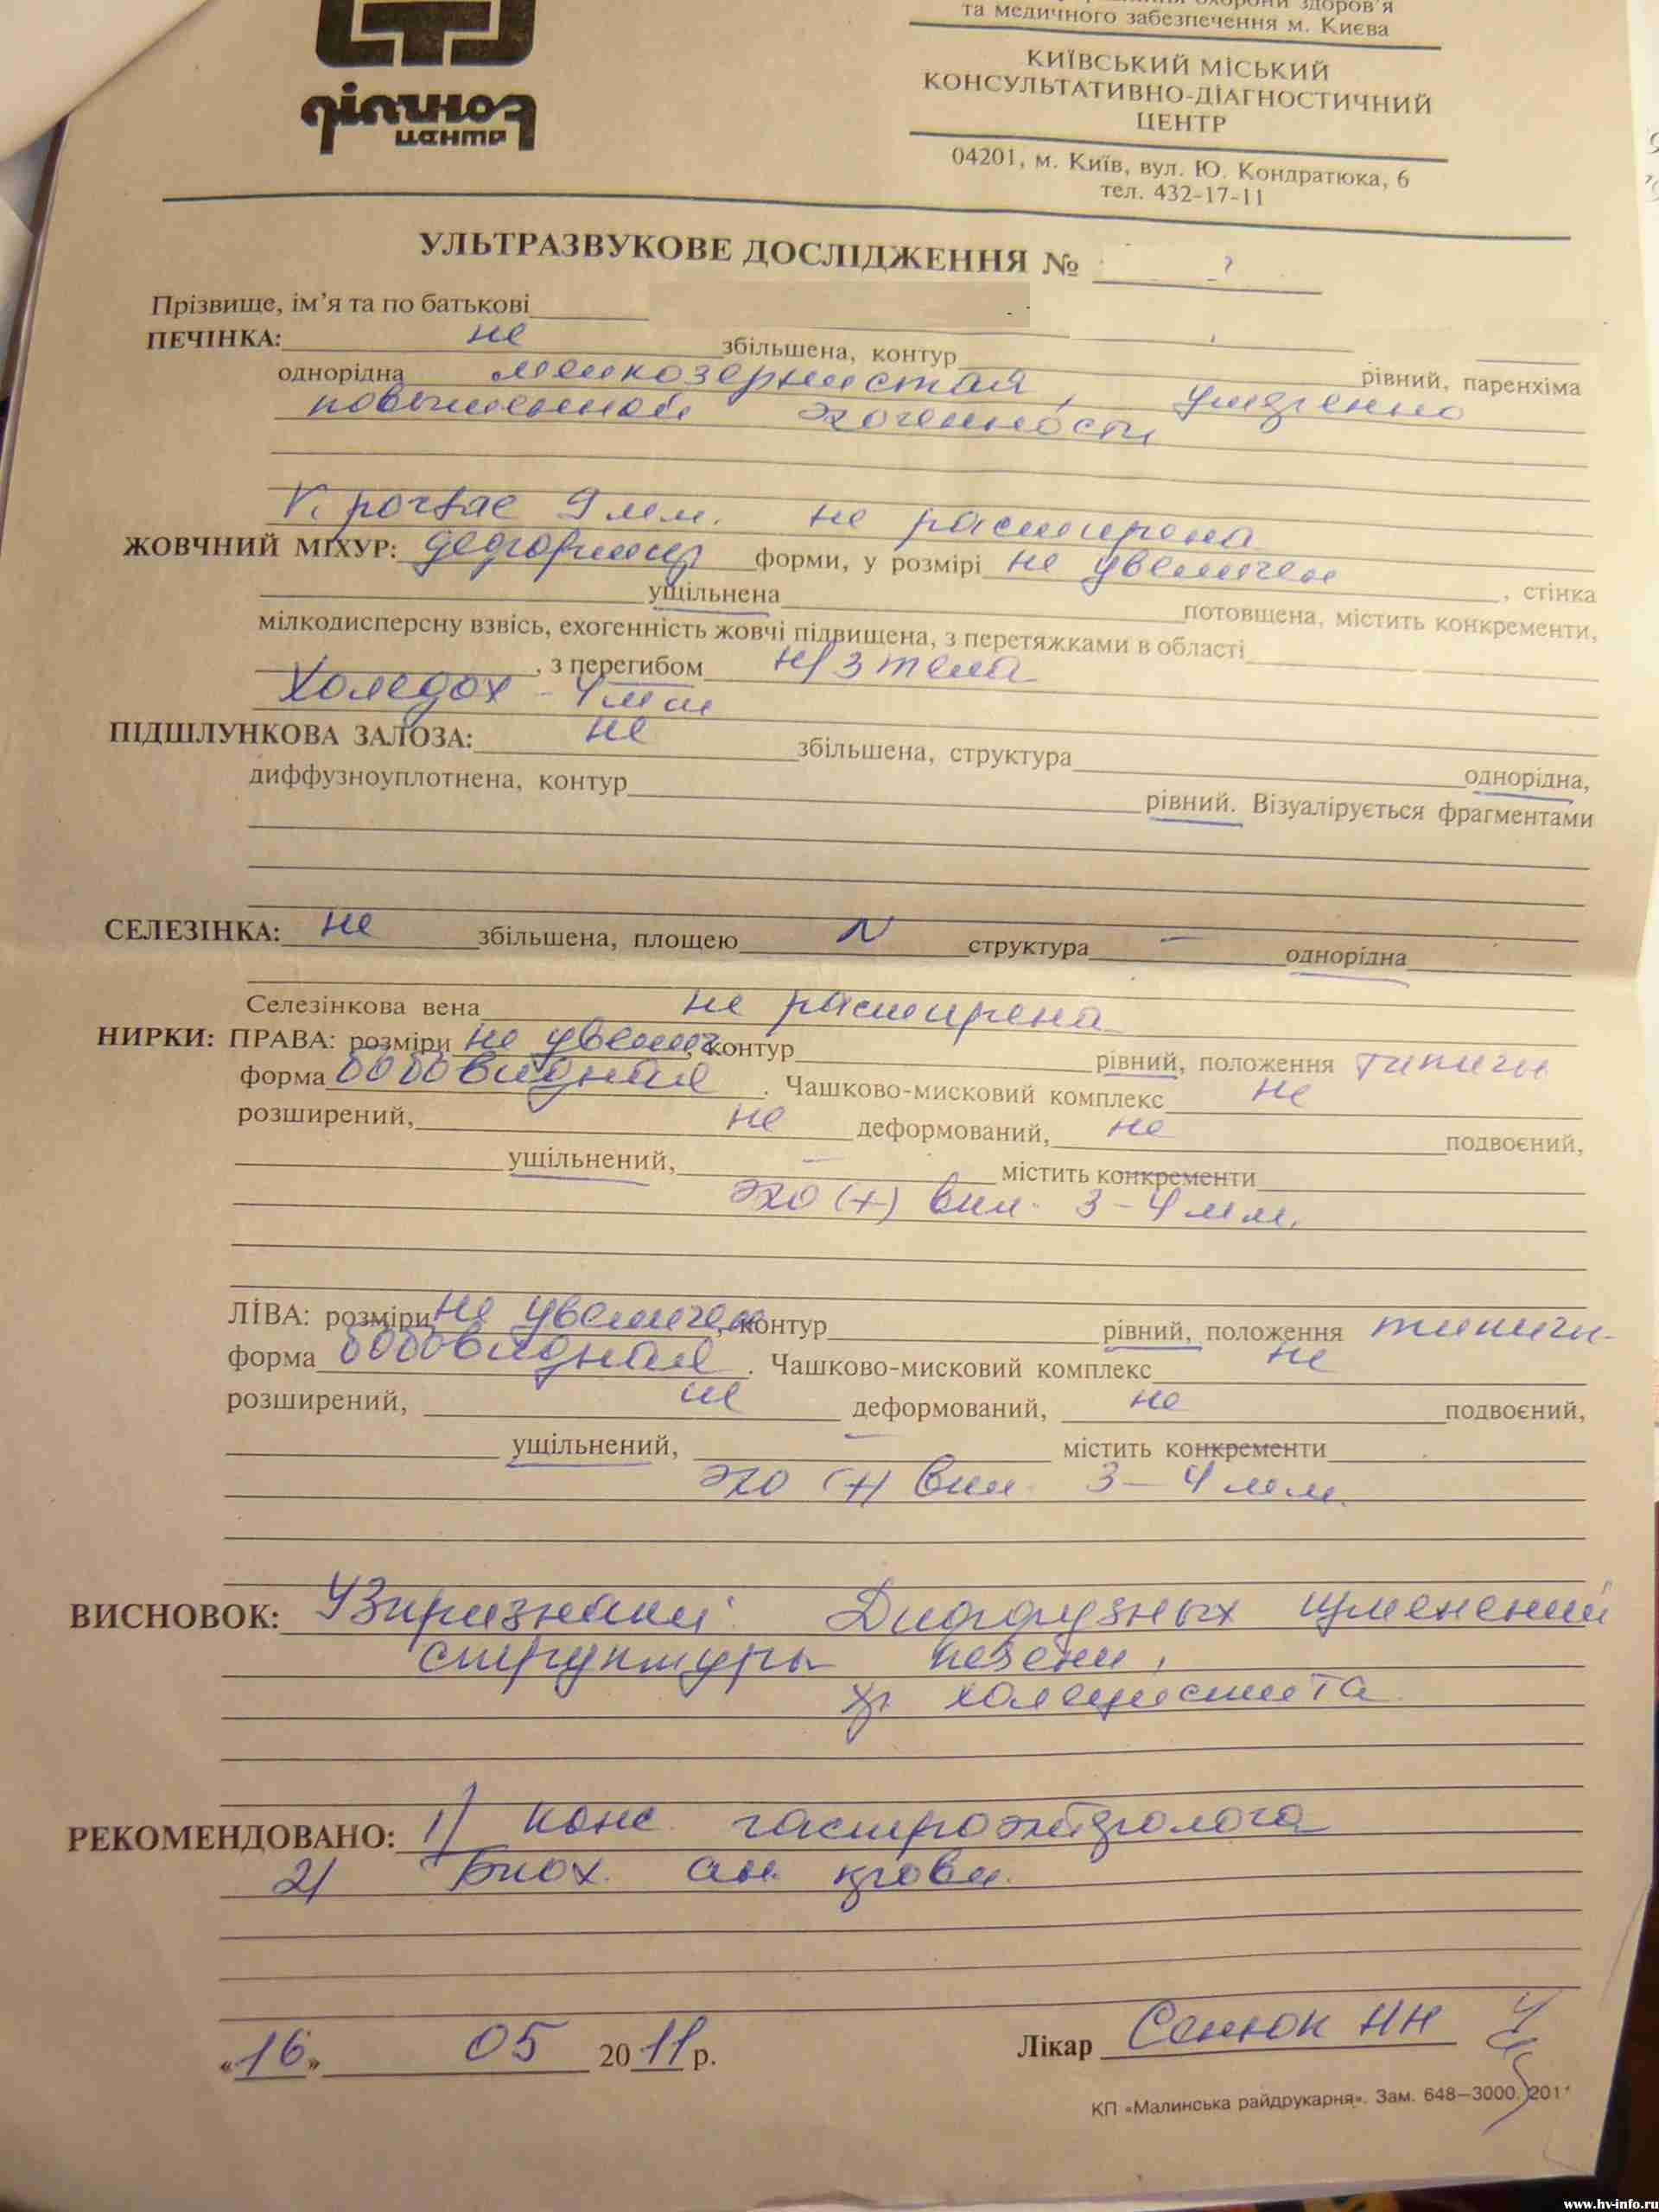 охорони здоров'я
та медичного забезпечення м. Києва
КИЇВСЬКИЙ МІСЬКИЙ
КОНСУЛЬТАТИВНО-ДІАГНОСТИЧНИЙ
ЦЕНТР
04201, м. Київ, вул. Ю. Кондратюка, 6
тел. 432-17-11
діагноз
центр
УЛЬТРАЗВУКОВЕ ДОСЛІДЖЕННЯ №
Прізвище, ім'я та по батькові
ПЕЧІНКА: не збільшена, контур рівний, паренхіма
однорідна мелкозернистая, умеренно
повышенной эхогенности
V. portae 9 мм. не расширена
ЖОВЧНИЙ МІХУР: деформир форми, у розмірі не увеличен, стінка
ущільнена потовщена, містить конкременти,
мілкодисперсну взвісь, ехогенність жовчі підвищена, з перетяжками в області
, з перегибом н/3 тела
Холедох - 4 мм
ПІДШЛУНКОВА ЗАЛОЗА: не збільшена, структура однорідна,
диффузноуплотнена, контур рівний. Візуалірується фрагментами
СЕЛЕЗІНКА: не збільшена, площею N структура - однорідна
Селезінкова вена не расширена
НИРКИ: ПРАВА: розміри не увелич, контур рівний, положення типичн
форма бобовидная. Чашково-мисковий комплекс не
розширений, не деформований, не подвоєний,
ущільнений, - містить конкременти
эхо (+) вкл. 3-4 мм.
ЛІВА: розміри не увеличен, контур рівний, положення типичн.
форма бобовидная. Чашково-мисковий комплекс не
розширений, не деформований, не подвоєний,
ущільнений, містить конкременти
эхо (+) вкл. 3-4 мм.
ВИСНОВОК: УЗпризнаки: Диффузных изменений
структуры печени,
хр холецистита
РЕКОМЕНДОВАНО: 1) конс. гастроэнтеролога
2) Биох. ан. крови.
«16» 05 2011 р. Лікар Сенюк НН
КП «Малинська райдрукарня». Зам. 648-3000. 201
www.hv-info.ru